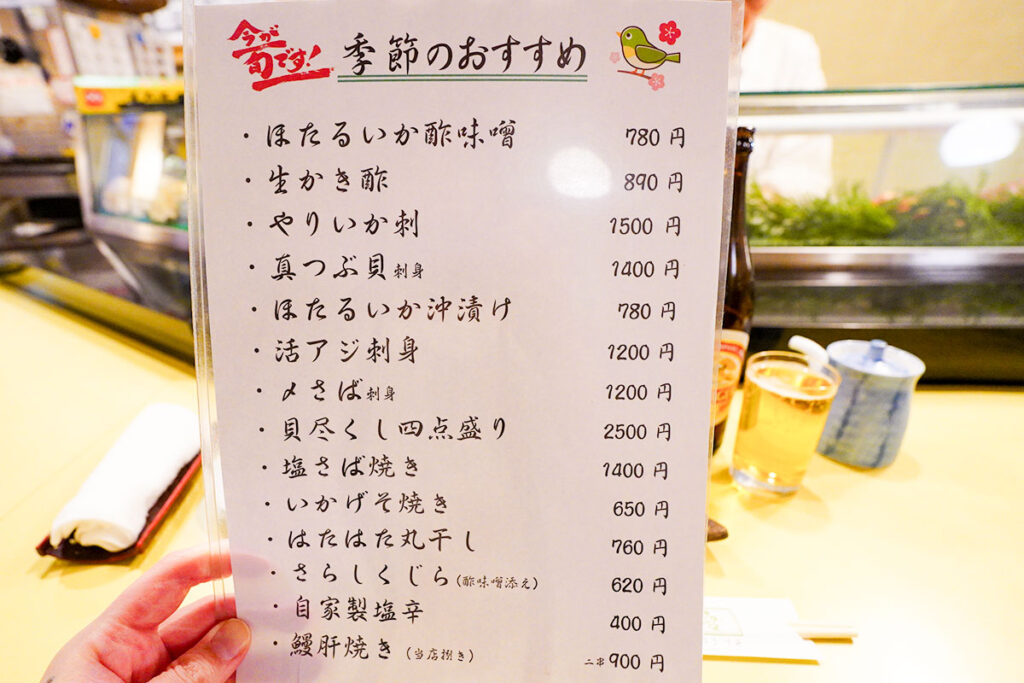 今が旬です!
季節のおすすめ
・ほたるいか酢味噌 780円
・生かき酢 890円
・やりいか刺 1500円
・真つぶ貝刺身 1400円
・ほたるいか沖漬け 780円
・活アジ刺身 1200円
・〆さば刺身 1200円
・貝尽くし四点盛り 2500円
・塩さば焼き 1400円
・いかげそ焼き 650円
・はたはた丸干し 760円
・さらしくじら(酢味噌添え) 620円
・自家製塩辛 400円
・鰻肝焼き(当店捌き) 二串900円